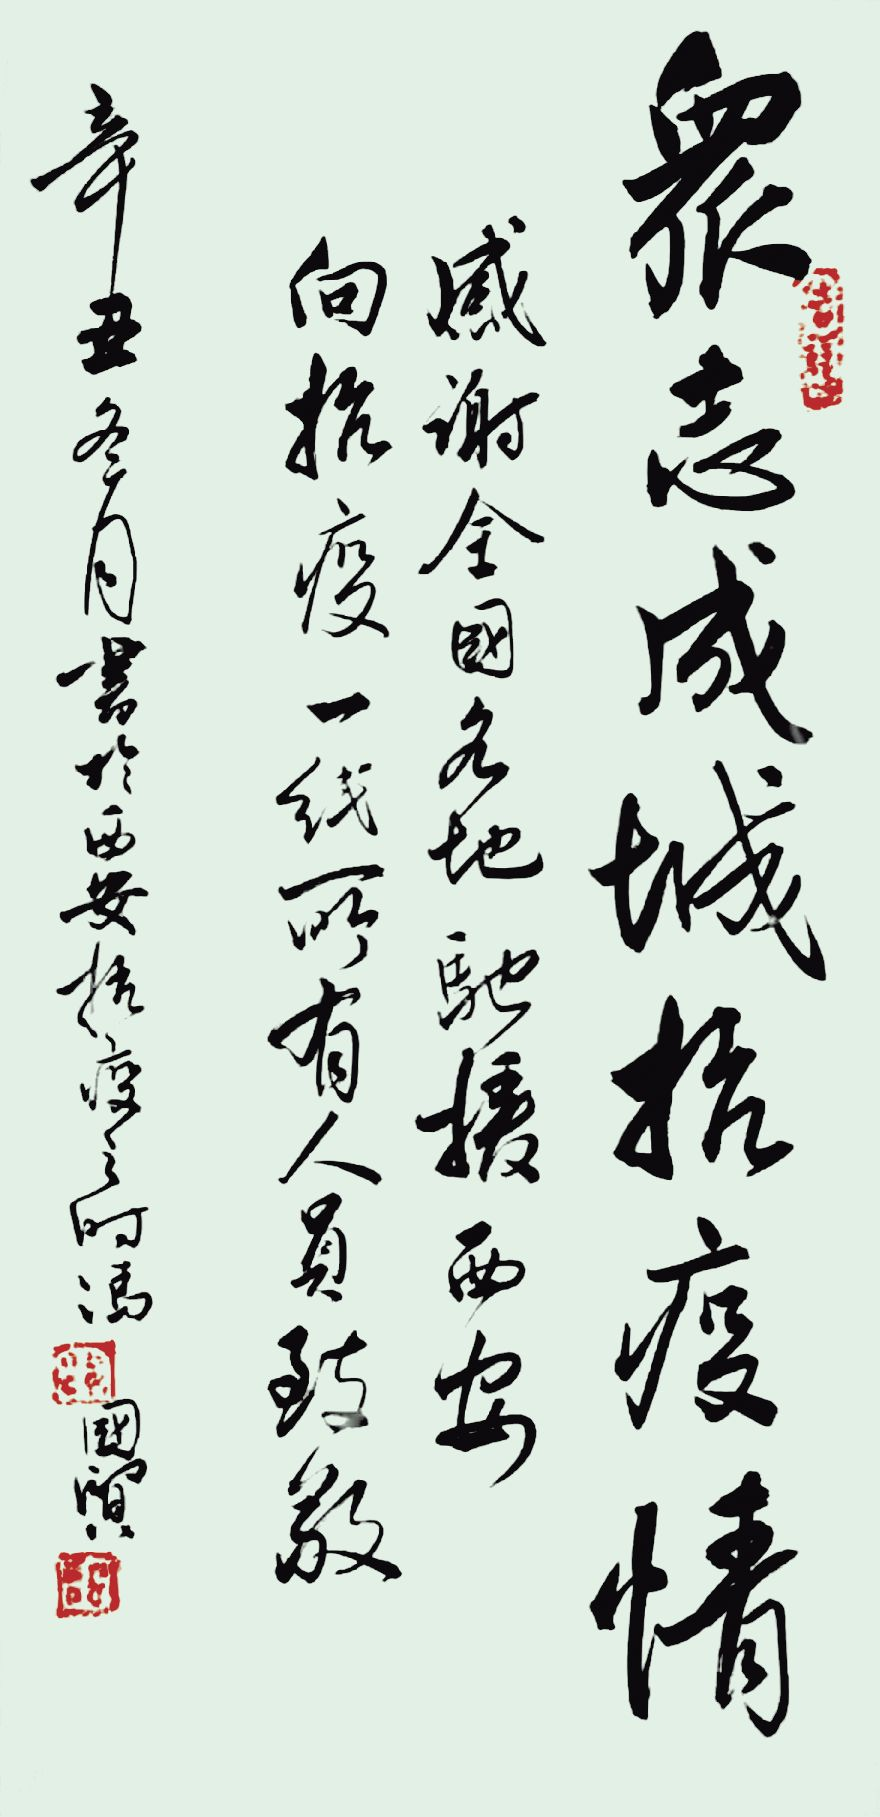 眾志成城抗疫情
感谢全國各地馳援西安
向抗疫一线所有人員致敬
辛丑冬月書於西安抗疫之时馮國賢